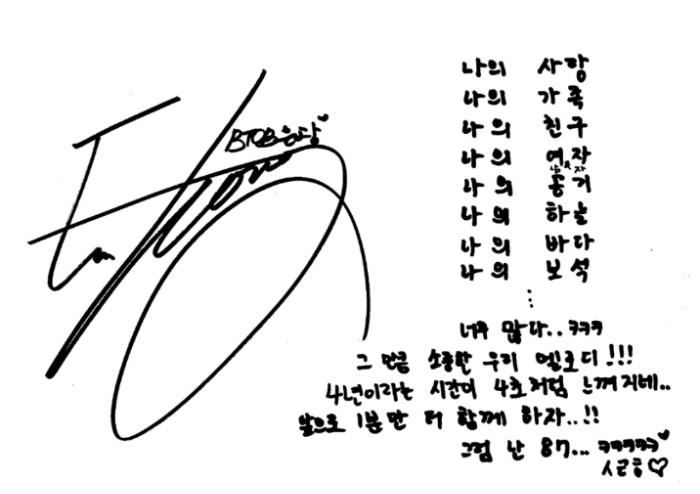 BTOB은광♥
나의 사랑
나의 가족
나의 친구
나의 여자
남자
나의 공기
나의 하늘
나의 바다
나의 보석
⋮
너무 많다..ㅋㅋㅋ
그 만큼 소중한 우리 멜로디!!!
4년이라는 시간이 4초처럼 느껴지네..
앞으로 1분만 더 함께 하자..!!
그럼 난 87...ㅋㅋㅋㅋㅋ♥